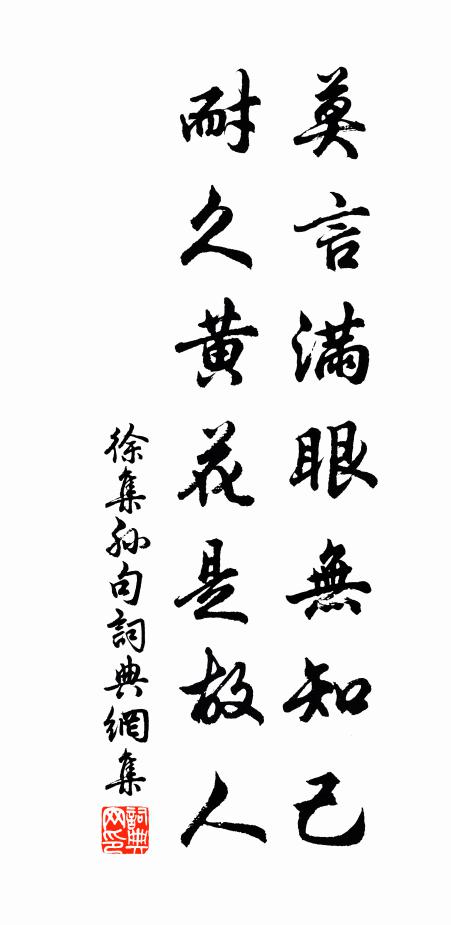 莫言滿眼無知己
耐久黃花是故人
徐集孫句詞典網集
詞典网印